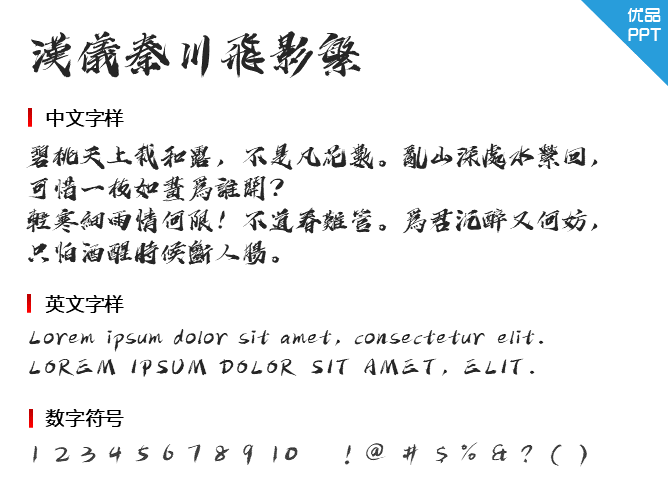 优品
PPT
漢儀秦川飛影繁
中文字样
碧桃天上栽和露，不是凡花數。亂山深處水縈回，
可惜一枝如畫爲誰開？
輕寒細雨情何限！不道春難管。爲君沉醉又何妨，
只怕酒醒時候斷人腸。
英文字样
Lorem ipsum dolor sit amet, consectetur elit.
LOREM IPSUM DOLOR SIT AMET, ELIT.
数字符号
1 2 3 4 5 6 7 8 9 10 ! @ # $ % & ? ( )